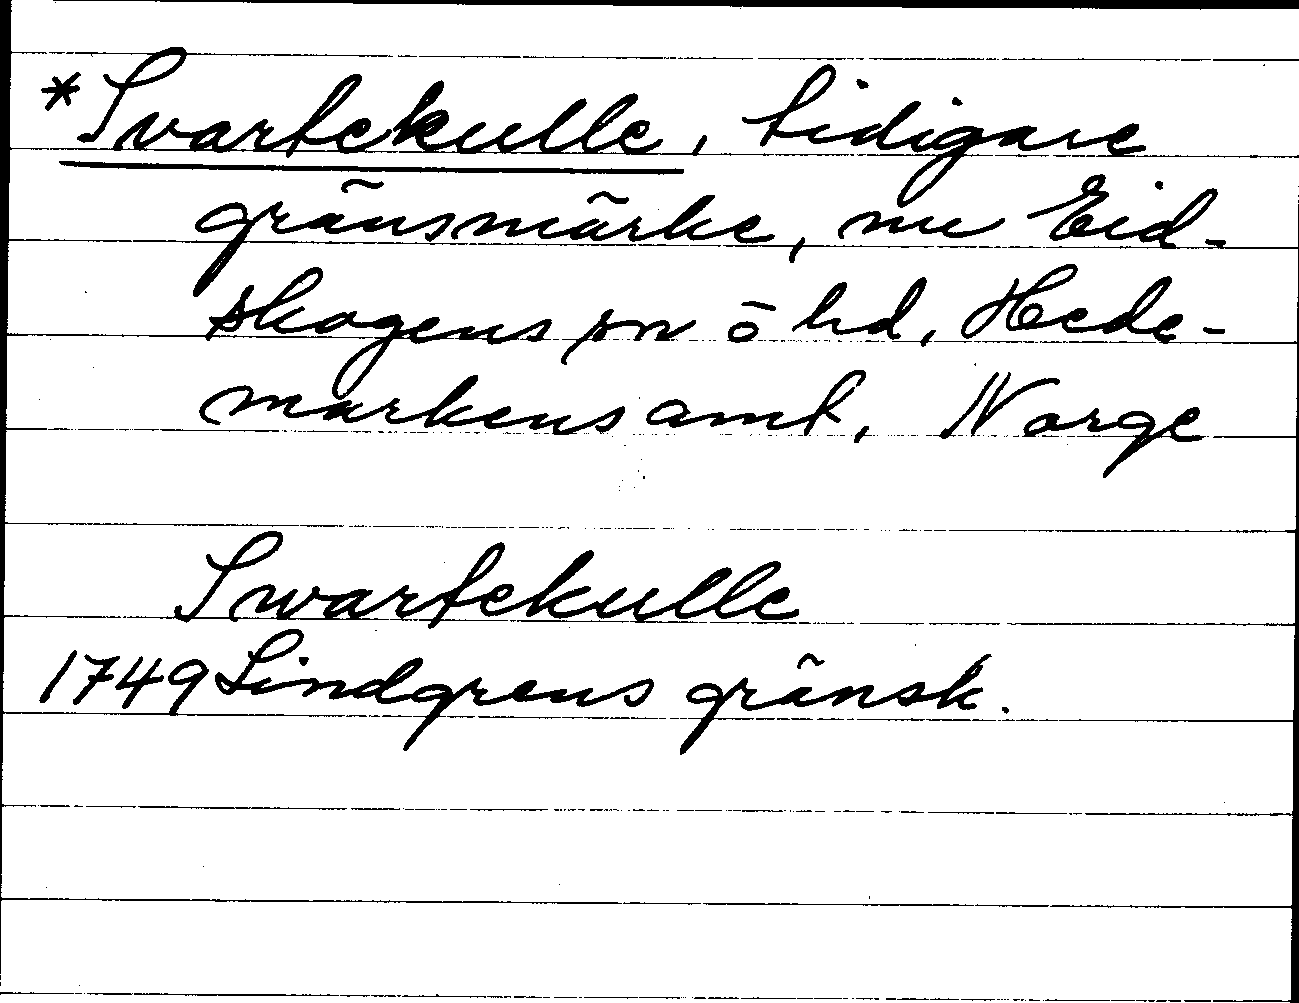 *Svartekulle, tidigare
gränsmärke, nu Eid-
skogens sn o hd, Hede-
markens amt, Norge
Swartekulle
1749 Lindgrens gränsk.